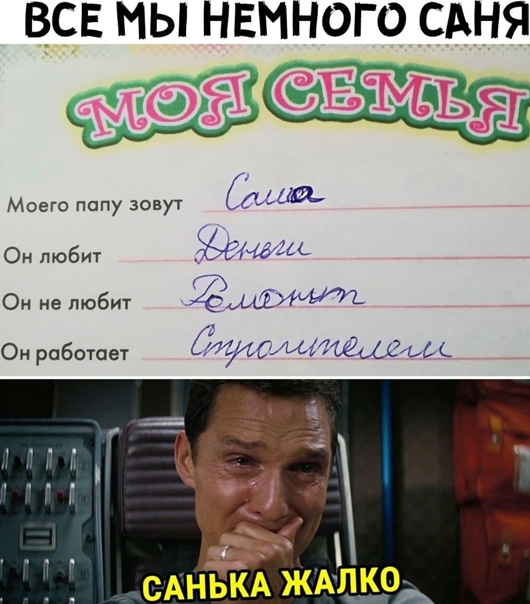 ВСЕ МЫ НЕМНОГО САНЯ
МОЯ СЕМЬЯ
Моего папу зовут Саша
Он любит Деньги
Он не любит Ремонт
Он работает Строителем
САНЬКА ЖАЛКО